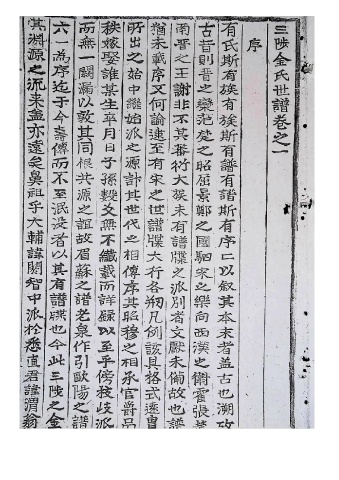 三陟金氏世譜卷之一
序
有氏斯有族有族斯有譜有譜斯有序二以叙其本末者盖古也溯攷
古昔則晋之欒范楚之昭屈景鄭之國駟宋之樂向西漢之衛霍張
南晋之王謝非不其蕃衍大族未有譜牒之派別者文獻未備故也譜
猶未載序又何論逮至有宋之世譜牒大行各刱凡例該具格式逐
所出之始中繼始派之源詳其世代之相傳序其昭穆之相承官爵品
秩嫁娶誰某生卒月日子孫幾爻無不纖載而詳錄以至乎傍枝岐派
而無一闕漏以敦其同根共源之誼故眉蘇之譜老泉作引歐陽之譜
六一為序迄于今壽傳而不至泯沒者以其有譜牒也今此三陟之金
其淵源之流來盖亦遠矣鼻祖乎大輔諱閼智中派於悉直君諱渭翁